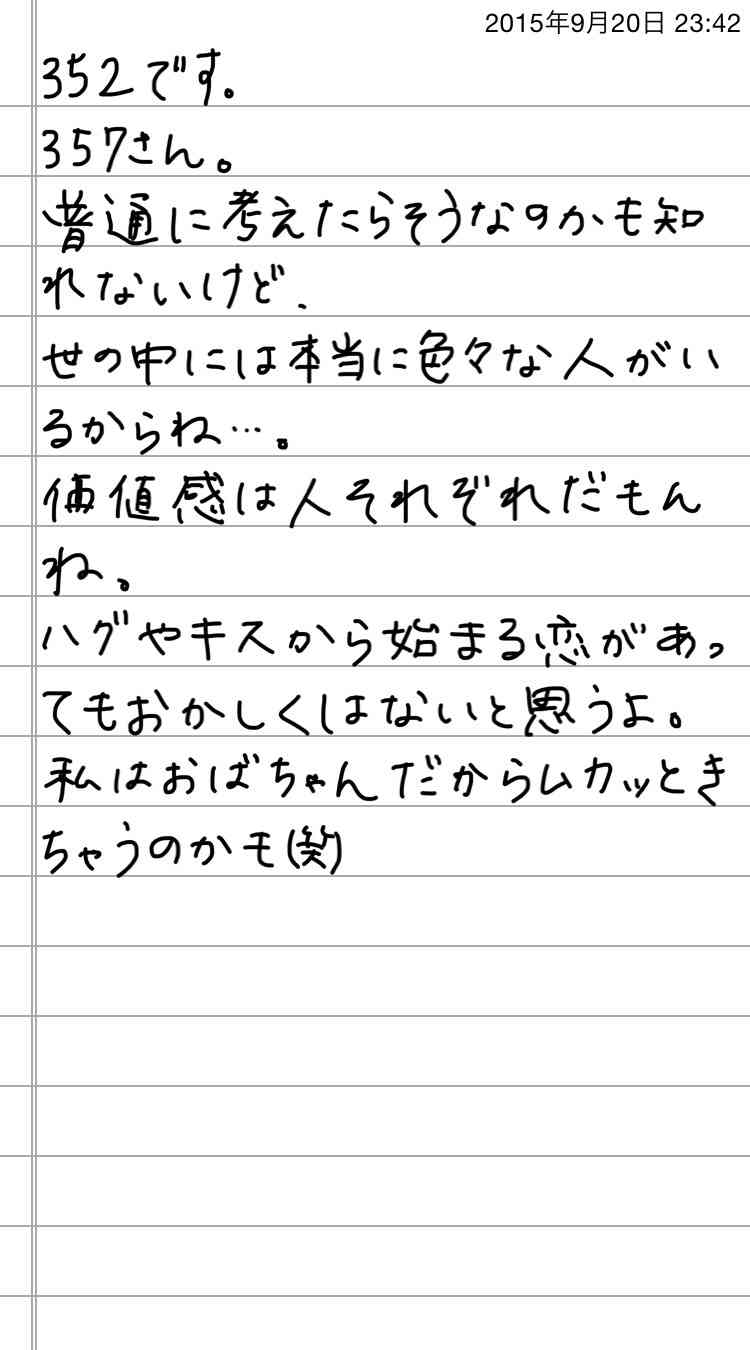 2015年9月20日 23:42
352です。
357さん。
普通に考えたらそうなのかも知
れないけど、
世の中には本当に色々な人がい
るからね…。
価値感は人それぞれだもん
ね。
ハグやキスから始まる恋があっ
てもおかしくはないと思うよ。
私はおばちゃんだからムカッとき
ちゃうのかも(笑)